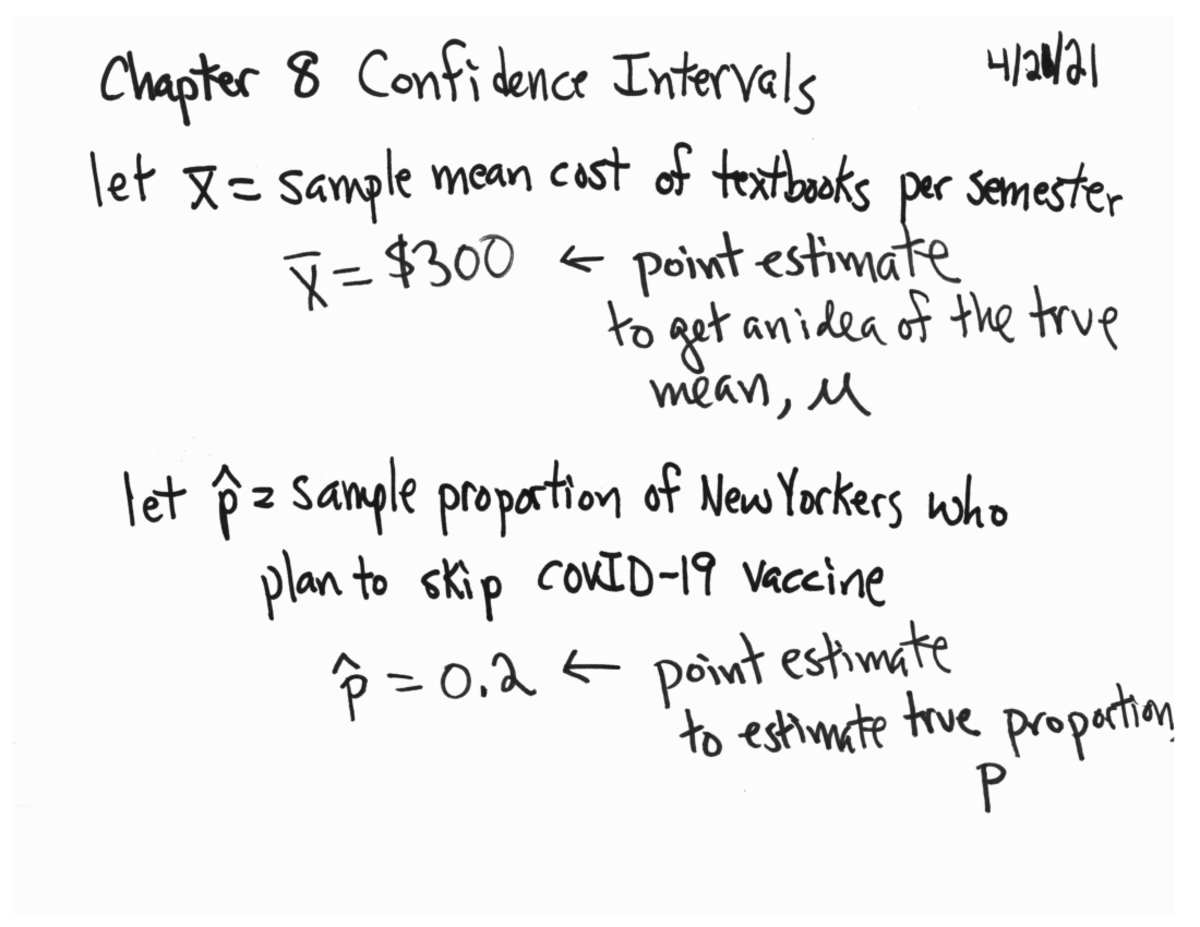 Chapter 8 Confidence Intervals
let x̄ = sample mean cost of textbooks per semester
x̄ = $300 ← point estimate
to get an idea of the true
mean, μ
let p̂ = sample proportion of New Yorkers who
plan to skip COVID-19 vaccine
p̂ = 0.2 ← point estimate
to estimate true proportion,
p